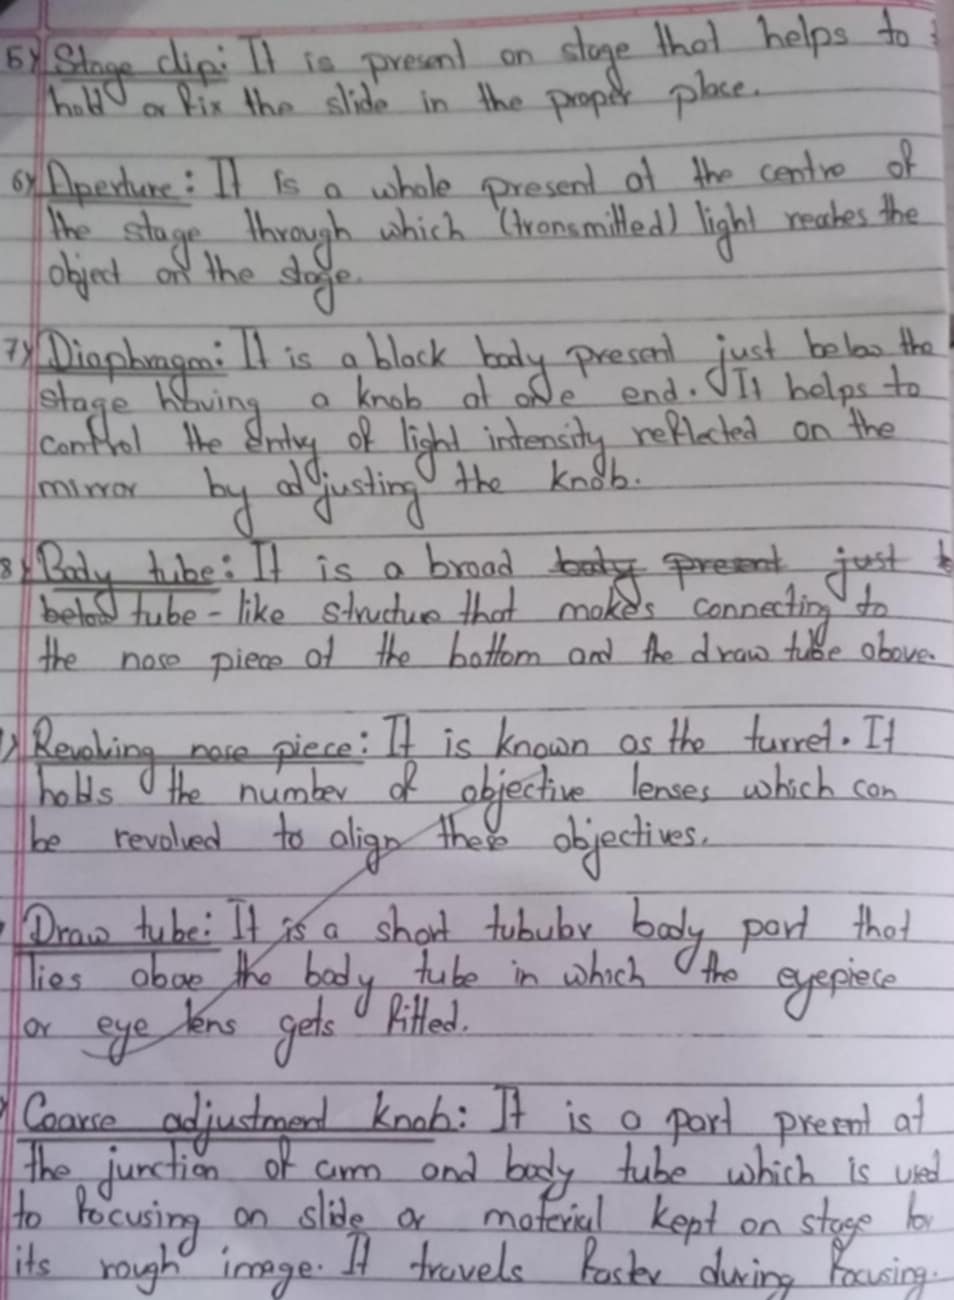 5) Stage clip: It is present on stage that helps to
hold or fix the slide in the proper place.
6) Aperture: It is a whole present at the centre of
the stage through which (transmitted) light reaches the
object on the stage.
7) Diaphragm: It is a black body present just below the
stage having a knob at one end. It helps to
control the entry of light intensity reflected on the
mirror by adjusting the knob.
8) Body tube: It is a broad body present just b
below tube-like structure that makes connecting to
the nose piece at the bottom and the draw tube above.
) Revolving nose piece: It is known as the turret. It
holds the number of objective lenses which can
be revolved to align these objectives.
Draw tube: It is a short tubular body part that
lies above the body tube in which the eyepiece
or eye lens gets fitted.
Coarse adjustment knob: It is a part present at
the junction of arm and body tube which is used
to focusing on slide or material kept on stage for
its rough image. It travels faster during focusing.